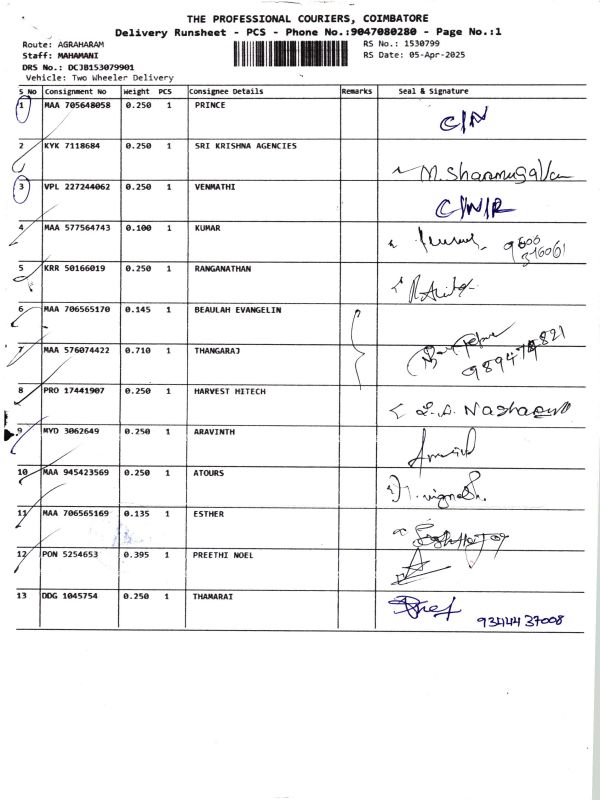 THE PROFESSIONAL COURIERS, COIMBATORE
Delivery Runsheet - PCS - Phone No.:9047080280 - Page No.:1
Route: AGRAHARAM RS No.: 1530799
Staff: MAHAMANI RS Date: 05-Apr-2025
DRS No.: DCJB153079901
Vehicle: Two Wheeler Delivery
S No Consignment No Weight PCS Consignee Details Remarks Seal & Signature
1 MAA 705648058 0.250 1 PRINCE C/N
2 KYK 7118684 0.250 1 SRI KRISHNA AGENCIES
3 VPL 227244062 0.250 1 VENMATHI C/N/R
4 MAA 577564743 0.100 1 KUMAR
5 KRR 50166019 0.250 1 RANGANATHAN
6 MAA 706565170 0.145 1 BEAULAH EVANGELIN
7 MAA 576074422 0.710 1 THANGARAJ
8 PRO 17441907 0.250 1 HARVEST HITECH
9 MYD 3062649 0.250 1 ARAVINTH
10 MAA 945423569 0.250 1 ATOURS
11 MAA 706565169 0.135 1 ESTHER
12 PON 5254653 0.395 1 PREETHI NOEL
13 DDG 1045754 0.250 1 THAMARAI 9344437008